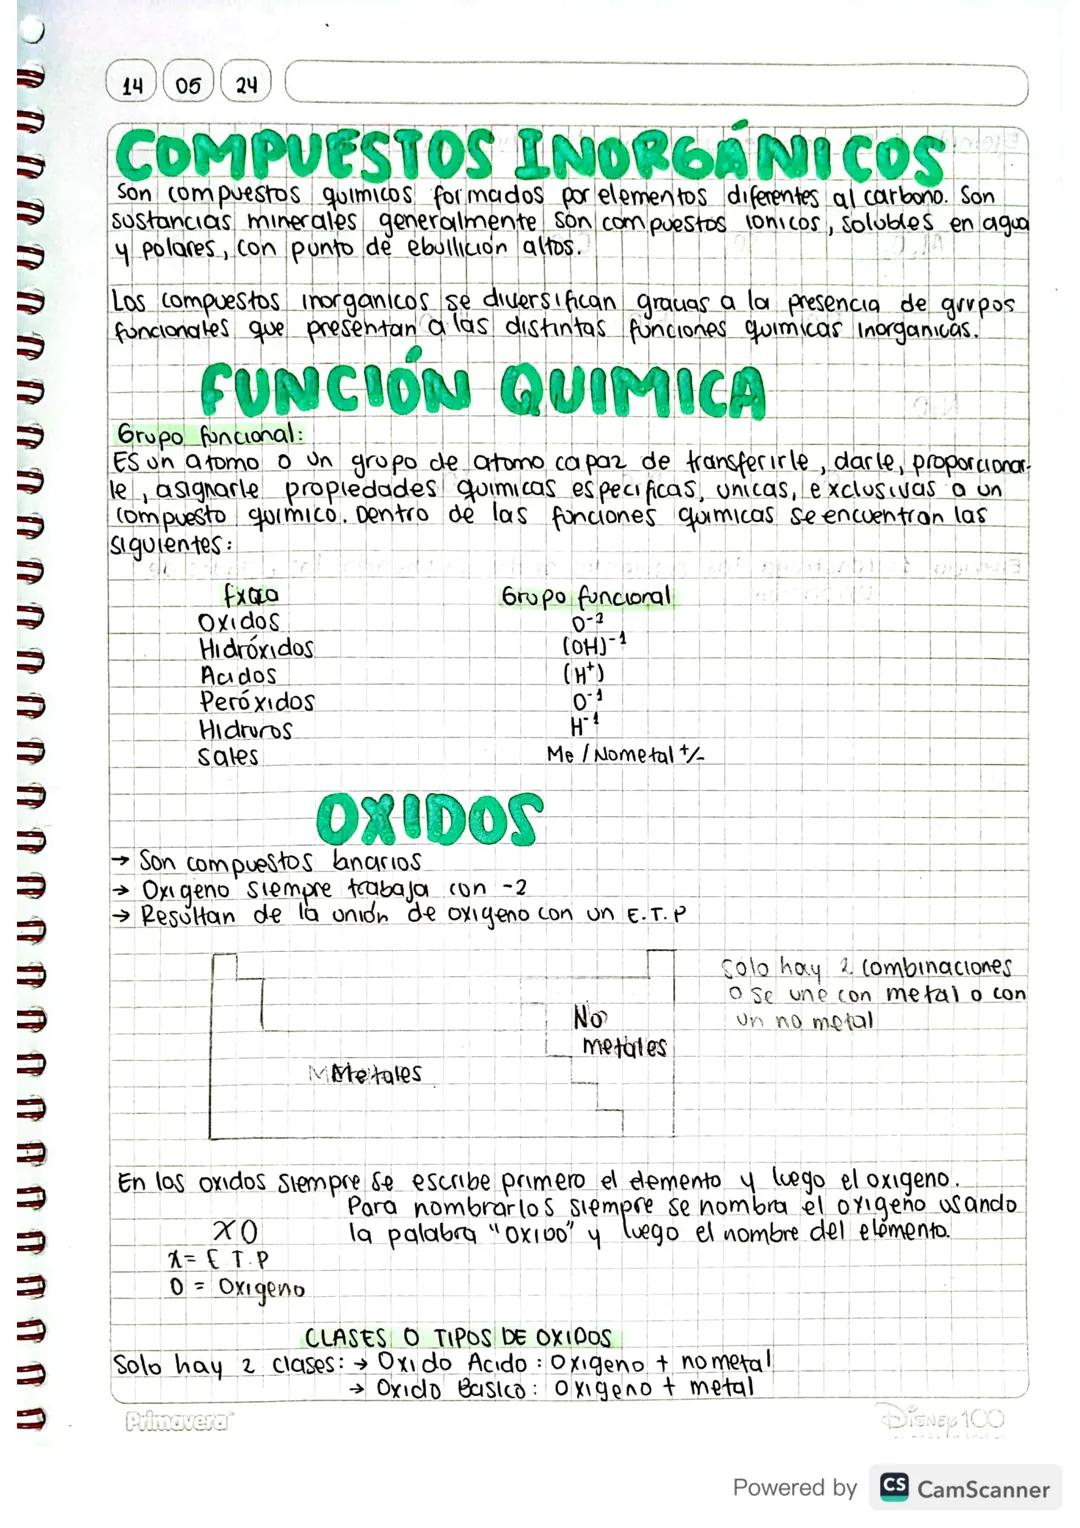 14 05 24
COMPUESTOS INORGÁNICOS
Son compuestos quimicos formados por elementos diferentes al carbono. Son
sustancias minerales generalmente son compuestos ionicos, solubles en agua
y polares, con punto de ebullición altos.
Los compuestos inorganicos se diversifican gracias a la presencia de grupos
funcionales que presentan a las distintas funciones quimicas inorganicas.
FUNCIÓN QUIMICA
Grupo funcional:
Es un atomo o un grupo de atomo capaz de transferirle, darle, proporcionar-
le, asignarle propiedades quimicas especificas, unicas, exclusivas a un
compuesto quimico. Dentro de las funciones quimicas se encuentran las
siguientes:
Grupo funcional
Oxidos O-2
Hidróxidos (OH)-1
Acidos (H+)
Peróxidos O-1
Hidruros H-1
Sales Me / Nometal +/-
OXIDOS
→ Son compuestos binarios
→ Oxigeno siempre trabaja con -2
→ Resultan de la unión de oxigeno con un E.T.P
Solo hay 2 combinaciones
o se une con metal o con
un no metal
No
metales
Metales
En los oxidos siempre se escribe primero el elemento y luego el oxigeno.
Para nombrarlos siempre se nombra el oxigeno usando
XO la palabra "OXIDO" y luego el nombre del elemento.
X= E T.P
O = Oxigeno
CLASES O TIPOS DE OXIDOS
Solo hay 2 clases: → Oxido Acido : Oxigeno + no metal
→ Oxido Basico : Oxigeno + metal
Primavera
DISNEP 100
Powered by CS CamScanner